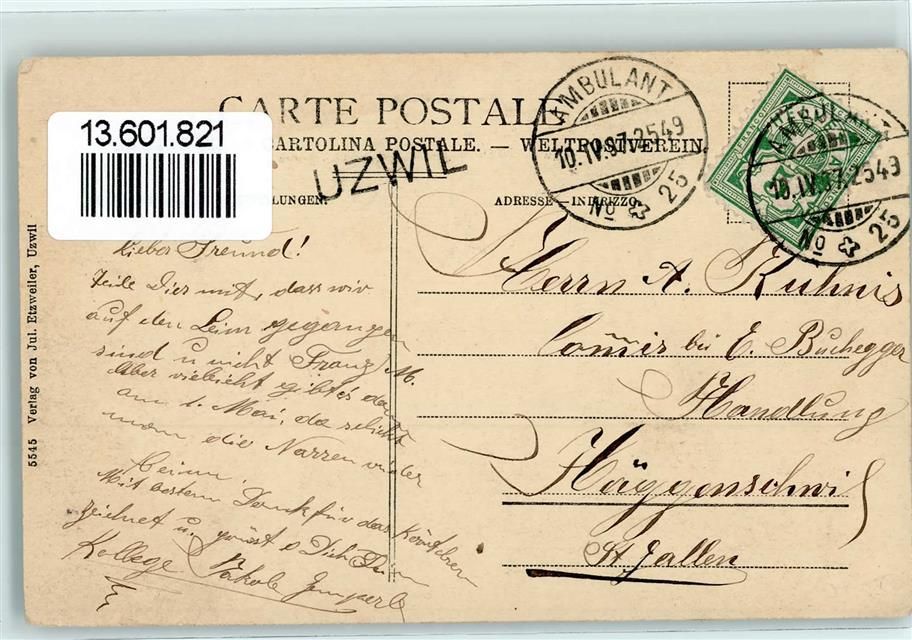 13.601.821
CARTE POSTALE
CARTOLINA POSTALE. — WELTPOSTVEREIN.
UZWIL
AMBULANT
10.IV.07.2549
No 25
AMBULANT
10.IV.07.2549
No 25
LUNGEN
ADRESSE — INDIRIZZO
5545 Verlag von Jul. Etzweiler, Uzwil
Lieber Freund!
Teile Dier mit, dass wir
auf den Leim gegangen
sind u nicht Franz M.
Aber vieleicht gibt's dan
am 1. Mai, da schickt
man die Narren wieder
heim.
Mit bestem Dank für das
zeichnet u. grüsst Dich Dein
Kollege Jakob
Herrn A. Kuhnis
Commis bei E. Buchegger
Handlung
Häggenschwil
St. Gallen